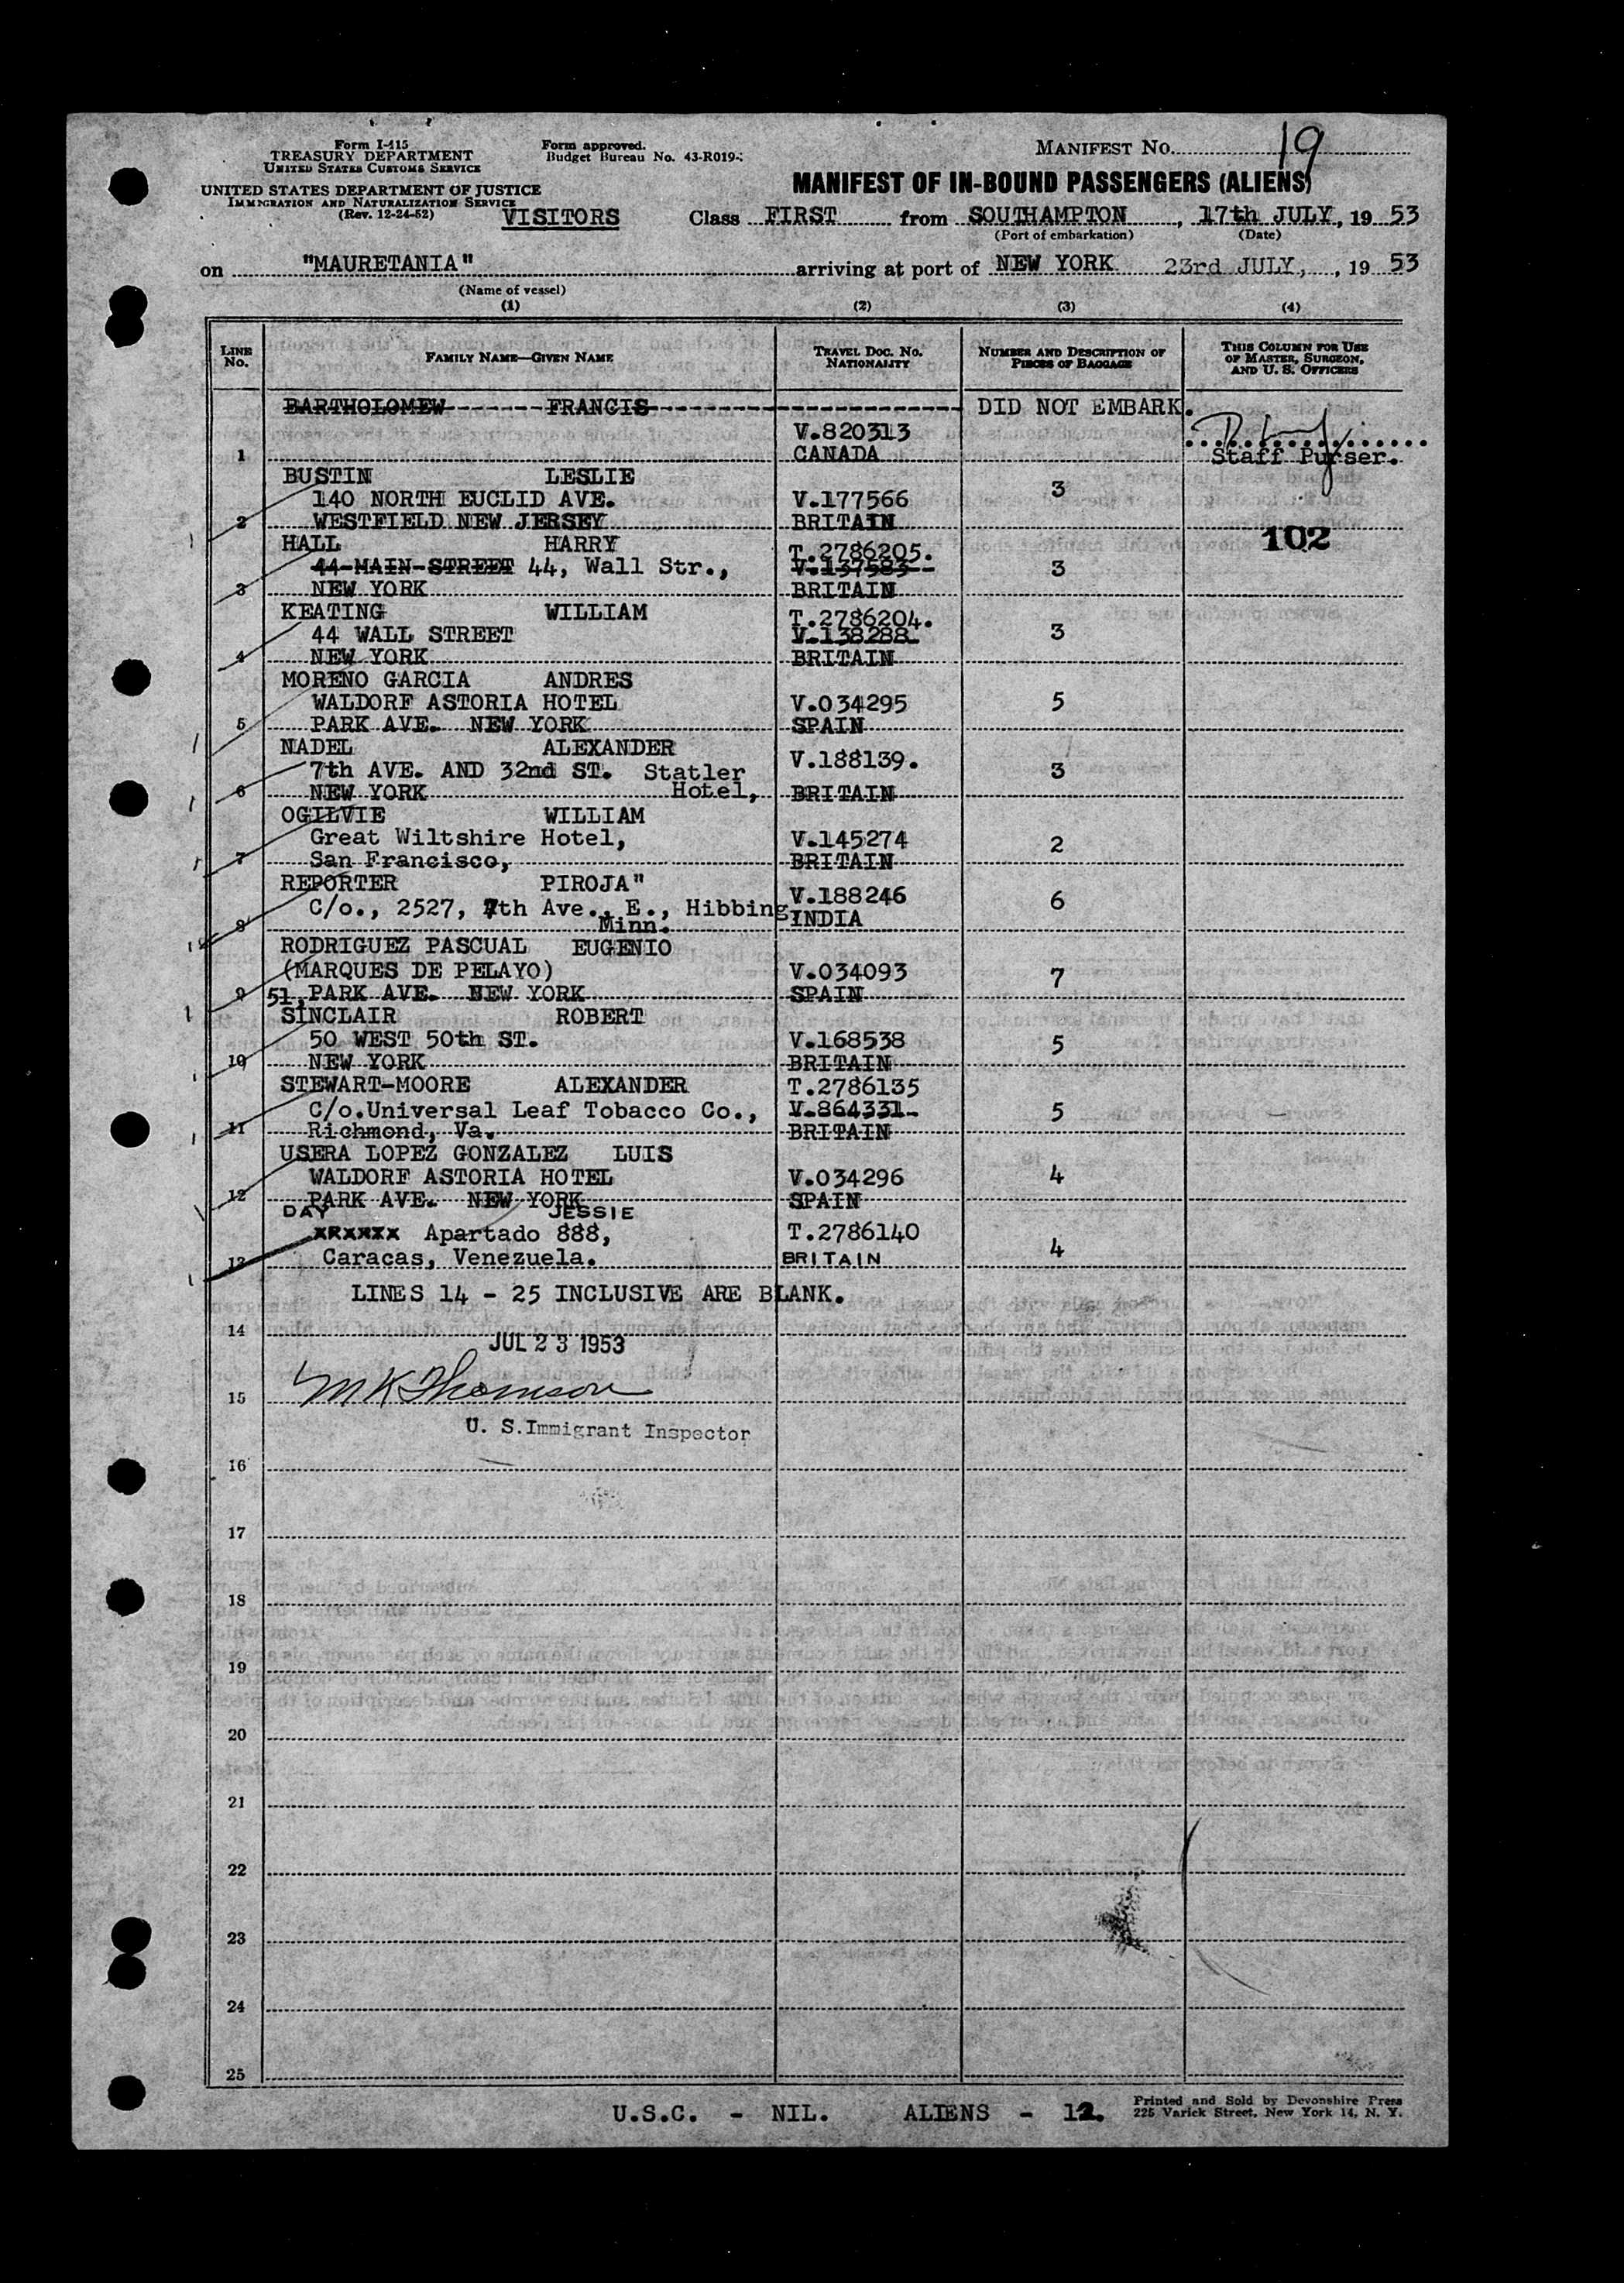 Form I-415
TREASURY DEPARTMENT
UNITED STATES CUSTOMS SERVICE
UNITED STATES DEPARTMENT OF JUSTICE
IMMIGRATION AND NATURALIZATION SERVICE
(Rev. 12-24-52)
Form approved.
Budget Bureau No. 43-R019-
MANIFEST No. 19
MANIFEST OF IN-BOUND PASSENGERS (ALIENS)
VISITORS Class FIRST from SOUTHAMPTON, 17th JULY, 19 53
(Port of embarkation) (Date)
on "MAURETANIA" arriving at port of NEW YORK 23rd JULY, , 19 53
(Name of vessel)
(1) (2) (3) (4)
LINE No. FAMILY NAME—GIVEN NAME TRAVEL DOC. No. NATIONALITY NUMBER AND DESCRIPTION OF PIECES OF BAGGAGE THIS COLUMN FOR USE OF MASTER, SURGEON, AND U. S. OFFICERS
BARTHOLOMEW FRANCIS DID NOT EMBARK.
V.820313
1 CANADA Staff Purser.
BUSTIN LESLIE
140 NORTH EUCLID AVE. V.177566 3
2 WESTFIELD NEW JERSEY BRITAIN
102
HALL HARRY T.2786205.
44 MAIN STREET 44, Wall Str., V.137583 3
3 NEW YORK BRITAIN
KEATING WILLIAM T.2786204.
44 WALL STREET V.138288 3
4 NEW YORK BRITAIN
MORENO GARCIA ANDRES
WALDORF ASTORIA HOTEL V.034295 5
5 PARK AVE. NEW YORK SPAIN
NADEL ALEXANDER V.188139.
7th AVE. AND 32nd ST. Statler 3
6 NEW YORK Hotel, BRITAIN
OGILVIE WILLIAM
Great Wiltshire Hotel, V.145274 2
7 San Francisco, BRITAIN
REPORTER PIROJA" V.188246
C/o., 2527, 7th Ave., E., Hibbing, INDIA 6
8 Minn.
RODRIGUEZ PASCUAL EUGENIO
(MARQUES DE PELAYO) V.034093 7
9 51, PARK AVE. NEW YORK SPAIN
SINCLAIR ROBERT
50 WEST 50th ST. V.168538 5
10 NEW YORK BRITAIN
STEWART-MOORE ALEXANDER T.2786135
C/o.Universal Leaf Tobacco Co., V.864331 5
11 Richmond, Va. BRITAIN
USERA LOPEZ GONZALEZ LUIS
WALDORF ASTORIA HOTEL V.034296 4
12 PARK AVE. NEW YORK SPAIN
DAY JESSIE
Apartado 888, T.2786140
13 Caracas, Venezuela. BRITAIN 4
LINES 14 - 25 INCLUSIVE ARE BLANK.
14
JUL 23 1953
15 M K Thomson
U. S.Immigrant Inspector
16
17
18
19
20
21
22
23
24
25
U.S.C. - NIL. ALIENS - 12.
Printed and Sold by Devonshire Press
225 Varick Street, New York 14, N. Y.